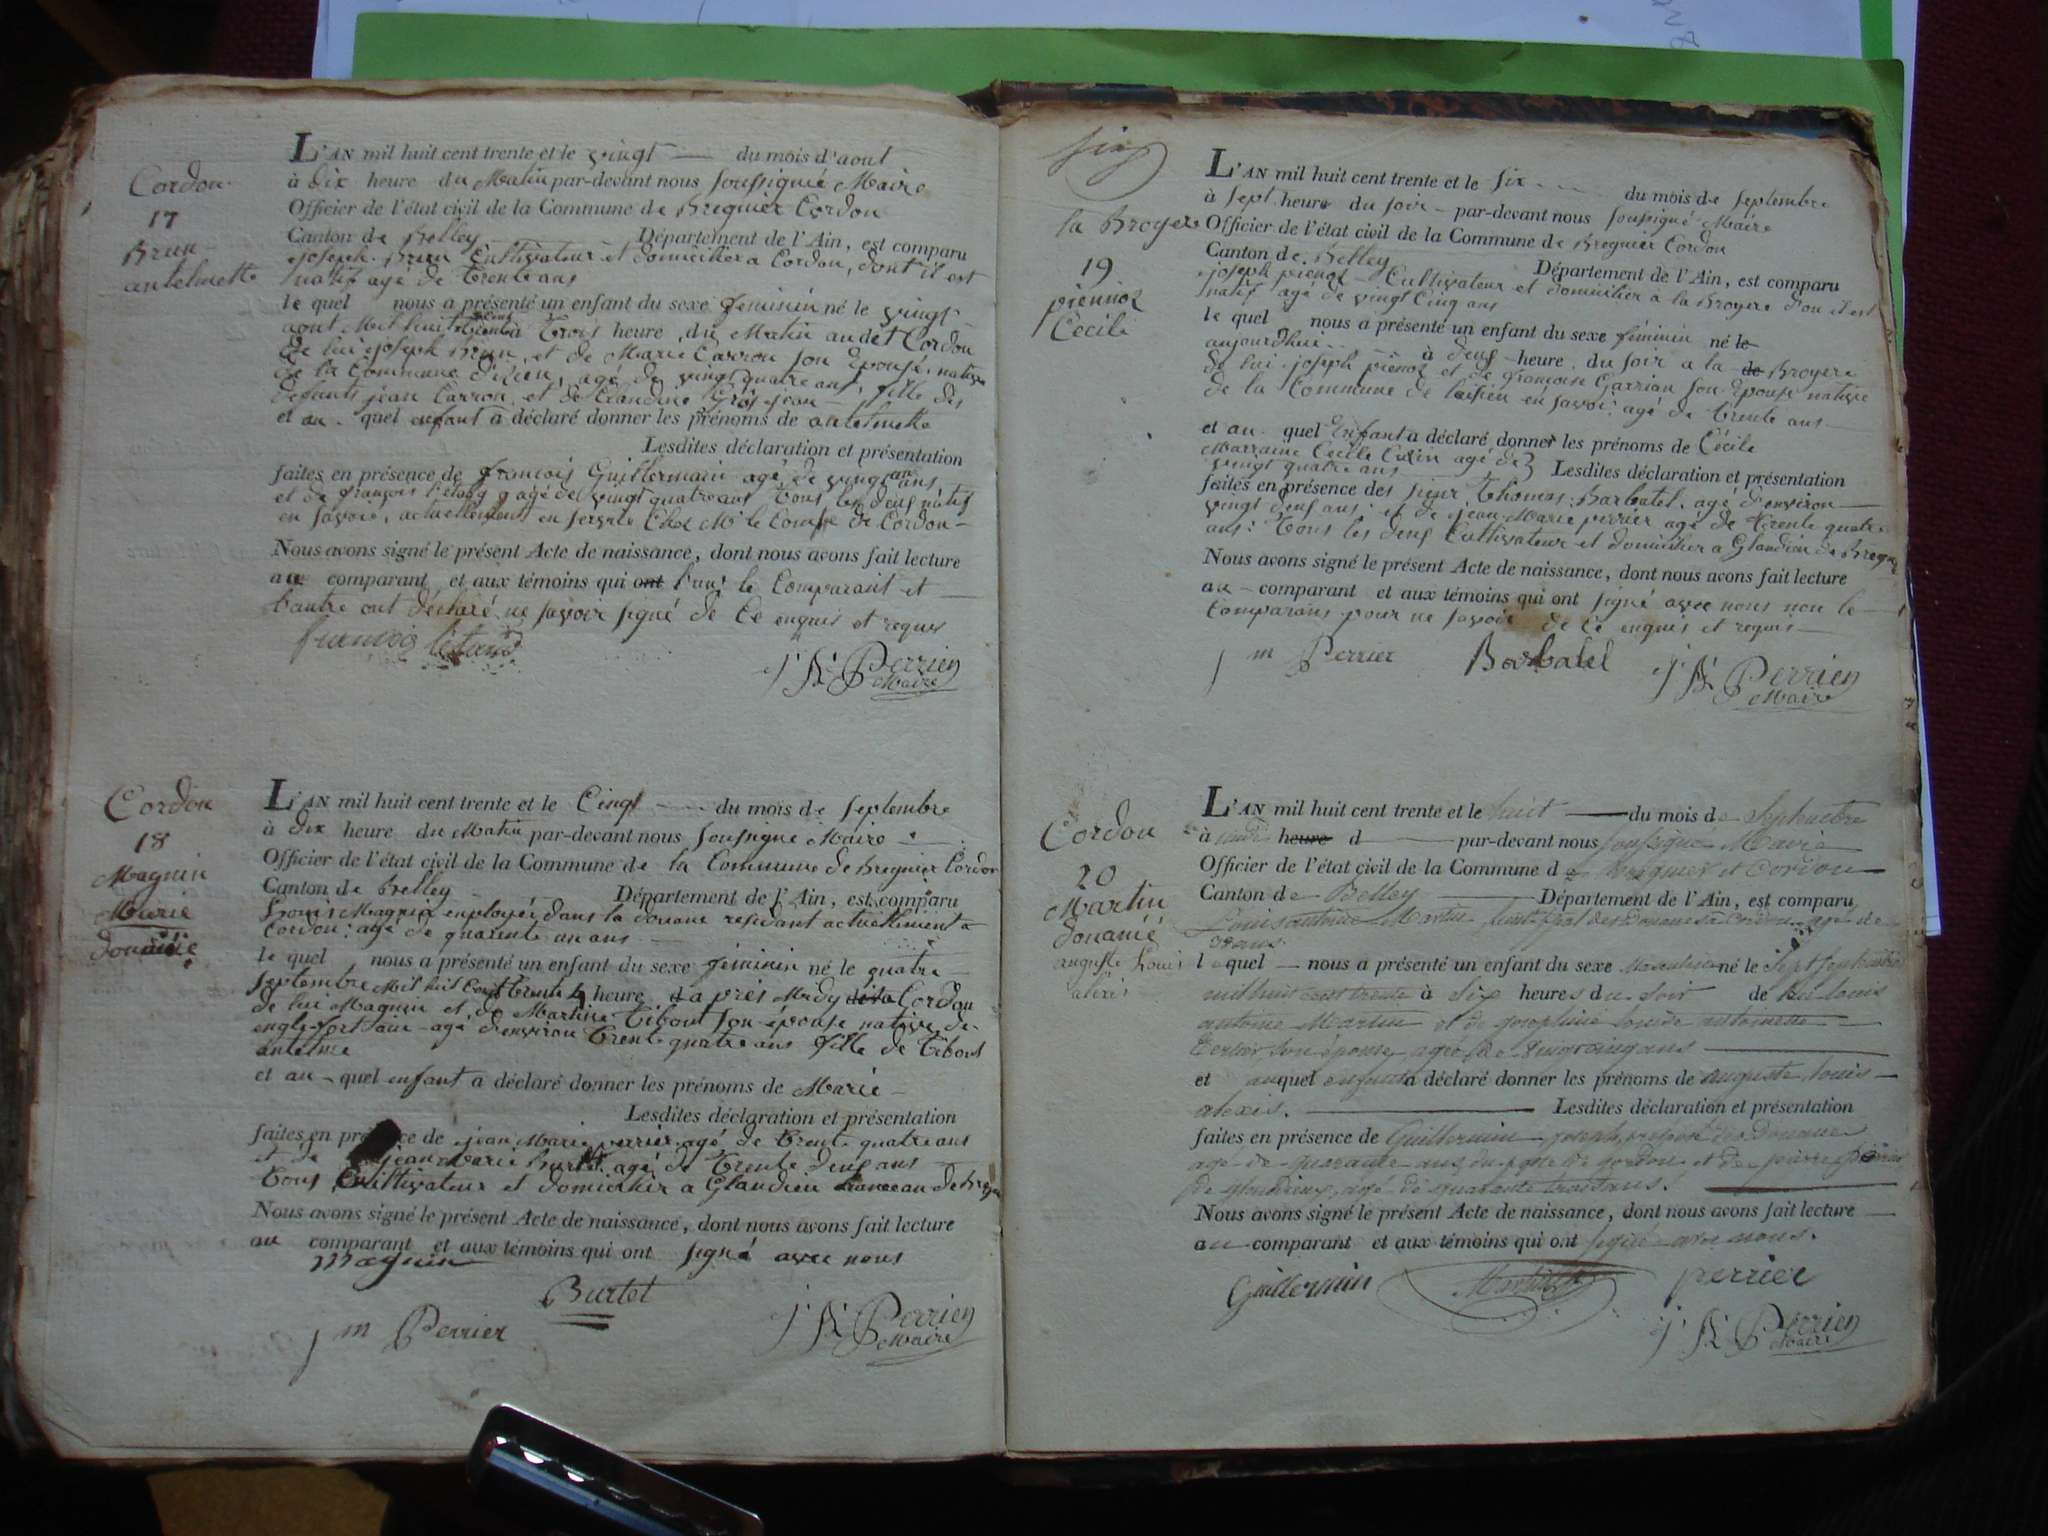 Cordon
17
Brun
antelmette
L'AN mil huit cent trente et le vingt du mois d'aout
à dix heure du Matin par-devant nous soussigné Maire
Officier de l'état civil de la Commune de Bregnier Cordon
Canton de Belley Département de l'Ain, est comparu
joseph Brun Cultivateur et domicilier a Cordon, dont il est
natif agé de trente ans
le quel nous a présenté un enfant du sexe feminin né le vingt
aout Mil huit cent trente à trois heure du Matin au dt Cordon
de lui joseph Brun, et de Marie Carron son Epouse, native
de la Commune d', agé de vingt quatre ans, fille des
defunts jean Carron et de Claudine Gros jean
et au quel enfant a déclaré donner les prénoms de antelmette
Lesdites déclaration et présentation
faites en présence de francois Guillermain agé de vingt ans
et de françois agé de vingt quatre ans tous les deux natif
en savoie, actuellement en service Chez Mr le Comte de Cordon
Nous avons signé le présent Acte de naissance, dont nous avons fait lecture
au comparant et aux témoins qui ont l'un; le Comparant et
l'autre ont déclaré ne savoir signé de Ce enquis et requis
francois
j. Perrier
Maire
Cordon
18
Magnin
Marie
douanié
L'AN mil huit cent trente et le Cinq du mois de septembre
à dix heure du Matin par-devant nous soussigné Maire
Officier de l'état civil de la Commune de la Commune de Bregnier Cordon
Canton de Belley Département de l'Ain, est comparu
Louis Magnin employée dans la douane residant actuellement a
Cordon: agé de quarente un ans
le quel nous a présenté un enfant du sexe féminin né le quatre
septembre Mil huit Cent trente 4 heure a près Midy Cordon
de lui Magnin et de Martine Tibout son épouse native de
agé d'environ trente quatre ans fille de Tibout
antelme
et au quel enfant a déclaré donner les prénoms de Marie
Lesdites déclaration et présentation
faites en présence de jean Marie perrier agé de trente quatre ans
et de jean Marie Burtet agé de trente deux ans
tous Cultivateur et domicilier a Glandieu hameau de Bregn
Nous avons signé le présent Acte de naissance, dont nous avons fait lecture
au comparant et aux témoins qui ont signé avec nous
Magnin
Burtet
j m Perrier
j. Perrier
Maire
six
la Broyere
19
piennoz
Cécile
L'AN mil huit cent trente et le six du mois de septembre
à sept heure du soir par-devant nous soussigné Maire
Officier de l'état civil de la Commune de Bregnier Cordon
Canton de Belley Département de l'Ain, est comparu
joseph pienoz Cultivateur et domicilier a la Broyere d'ou il est
natif agé de vingt Cinq ans
le quel nous a présenté un enfant du sexe féminin né le
aujourdhui à deux heure du soir a la de Broyere
de lui joseph pienoz et de françoise Carrian son Epouse native
de la Commune de en savoi: agé de trente ans
et au quel Enfant a déclaré donner les prénoms de Cécile
Marraine Cécile agé de
vingt quatre ans Lesdites déclaration et présentation
faites en présence des sieur thomas Barbatel agé d'environ
vingt deux ans: et de jean Marie perrier agé de trente quatre
ans: tous les deux Cultivateur et domicilier a Glandieu de Bregnier
Nous avons signé le présent Acte de naissance, dont nous avons fait lecture
au comparant et aux témoins qui ont signé avec nous non le
Comparans pour ne savoir de Ce enquis et requis
j m Perrier Barbatel
j. Perrier
Maire
Cordon
20
Martin
douanié
auguste Louis
alexis
L'AN mil huit cent trente et le huit du mois de Septembre
à midi heure d par-devant nous soussigné Maire
Officier de l'état civil de la Commune de Bregnier et Cordon
Canton de Belley Département de l'Ain, est comparu
Louis antoine Martin, des Douanes a Cordon agé de
ans
l e quel nous a présenté un enfant du sexe Masculin né le sept septembre
mil huit cent trente à six heures du soir de lui louis
antoine Martin et de josephine louise antoinette
son épouse agée de cinq ans
et auquel enfant a déclaré donner les prénoms de auguste louis
alexis. Lesdites déclaration et présentation
faites en présence de Guillermin joseph, préposé des Douanes
agé de quarante ans du poste de Cordon et de pierre perrier
de glandieux, agé de quarante trois ans.
Nous avons signé le présent Acte de naissance, dont nous avons fait lecture
au comparant et aux témoins qui ont signé avec nous.
Guillermin Martin perrier
j. Perrier
Maire